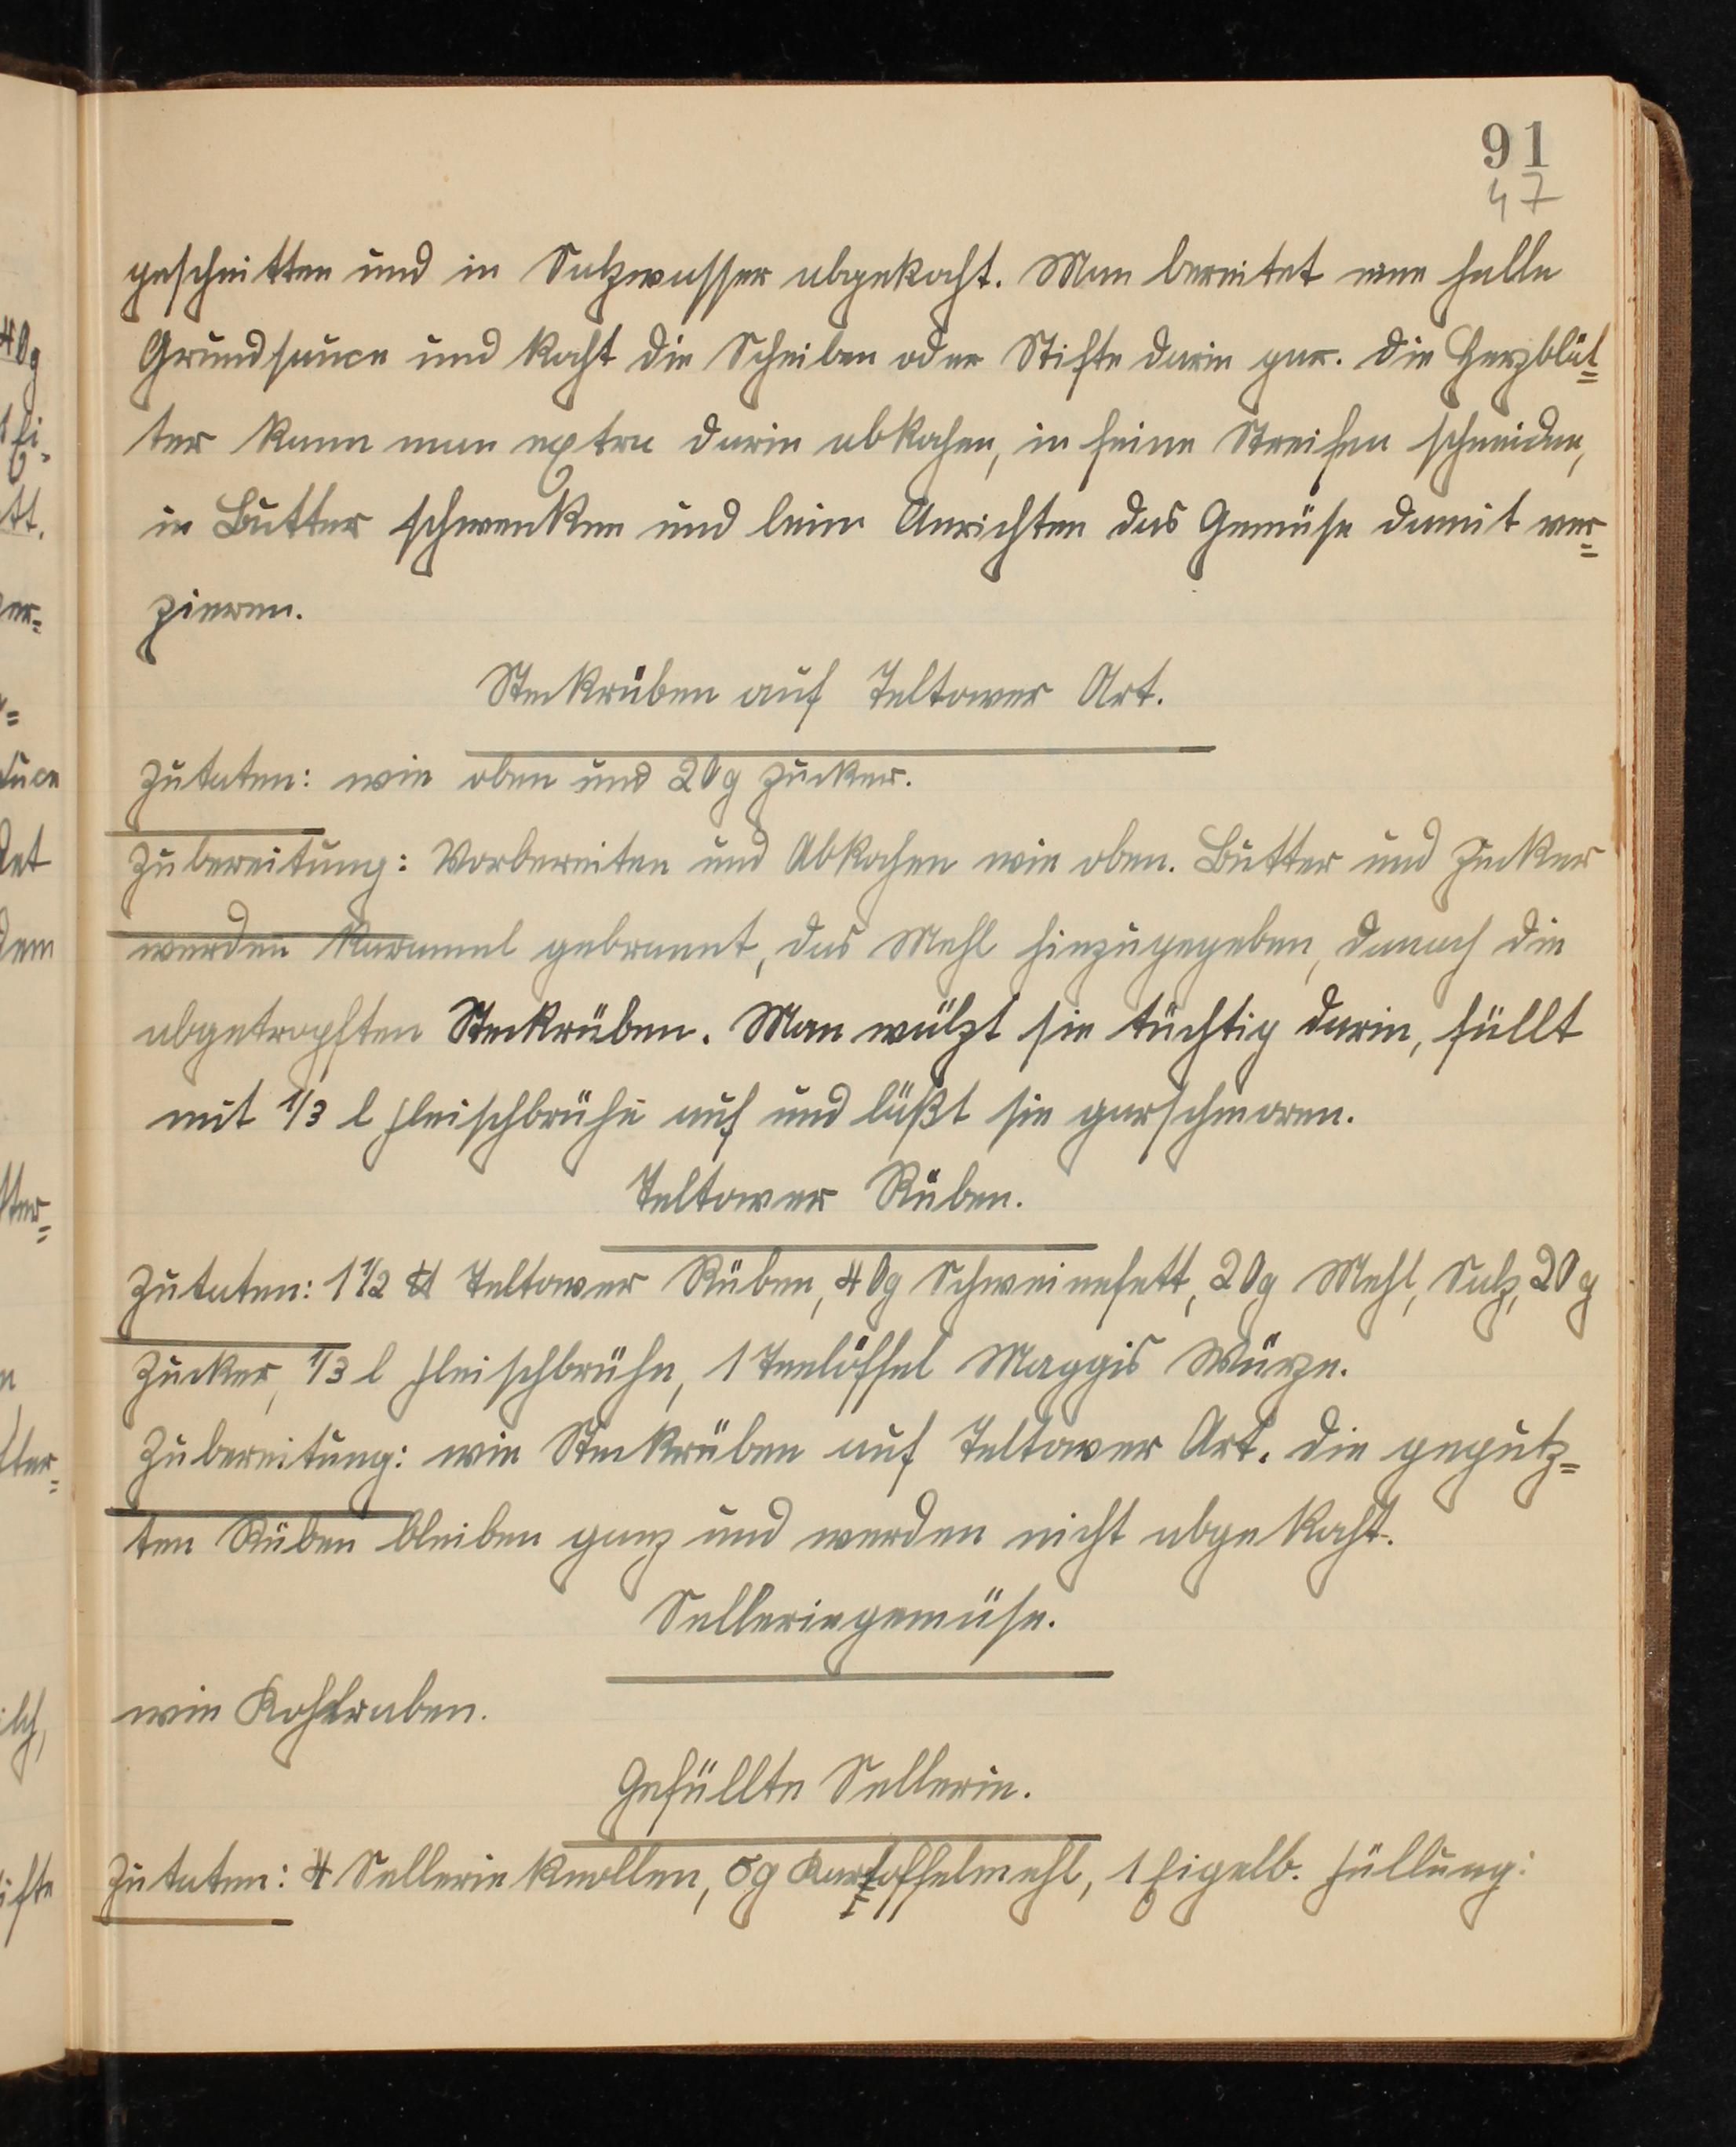 91
47
geschnitten und in Salzwasser abgekocht. Man bereitet eine helle
Grundsauce und kocht die Scheiben oder Stifte darin gar. Die Herzblät=
ter kann man extra darin abkochen, in feine Streifen schneiden,
in Butter schwenken und beim Anrichten das Gemüse damit ver=
zieren.
Steckrüben auf Teltower Art.
Zutaten: wie oben und 20g Zucker.
Zubereitung: Vorbereiten und Abkochen wie oben. Butter und Zucker
werden Karamel gebrannt, das Mehl hinzugegeben, danach die
abgetropften Steckrüben. Man wälzt sie tüchtig darin, füllt
mit 1/3 l Fleischbrühe auf und läßt sie garschmoren.
Teltower Rüben.
Zutaten: 1 1/2 ℔ Teltower Rüben, 40g Schweinefett, 20g Mehl, Salz, 20g
Zucker, 1/3 l Fleischbrühe, 1 Teelöffel Maggis Würze.
Zubereitung: wie Steckrüben auf Teltower Art. Die geputz=
ten Rüben bleiben ganz und werden nicht abgekocht.
Selleriegemüse.
wie Kohlraben.
Gefüllte Sellerie.
Zutaten: 4 Sellerieknollen, 5g Kartoffelmehl, 1 Eigelb. Füllung: